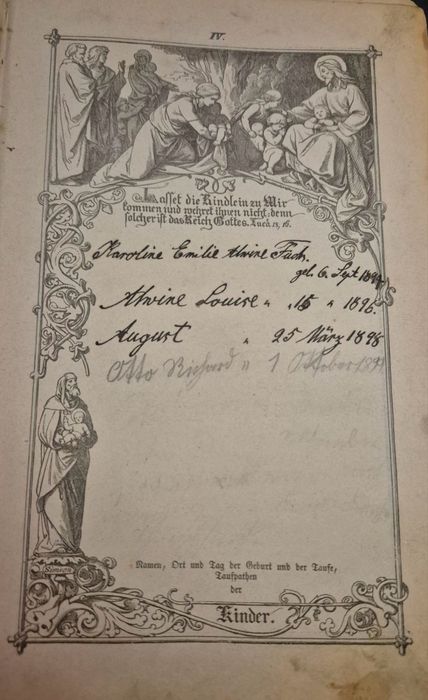 IV.
Lasset die Kindlein zu Mir
kommen und wehret ihnen nicht; denn
solcher ist das Reich Gottes. Luca 18, 16.
Karoline Emilie Alwine
geb. 6. Sept
Alwine Louise " " 15 " 1896.
August " 25 März 1898
Otto Richard " 1 Oktober
Simeon
Namen, Ort und Tag der Geburt und der Taufe,
Taufpathen
der
Kinder.